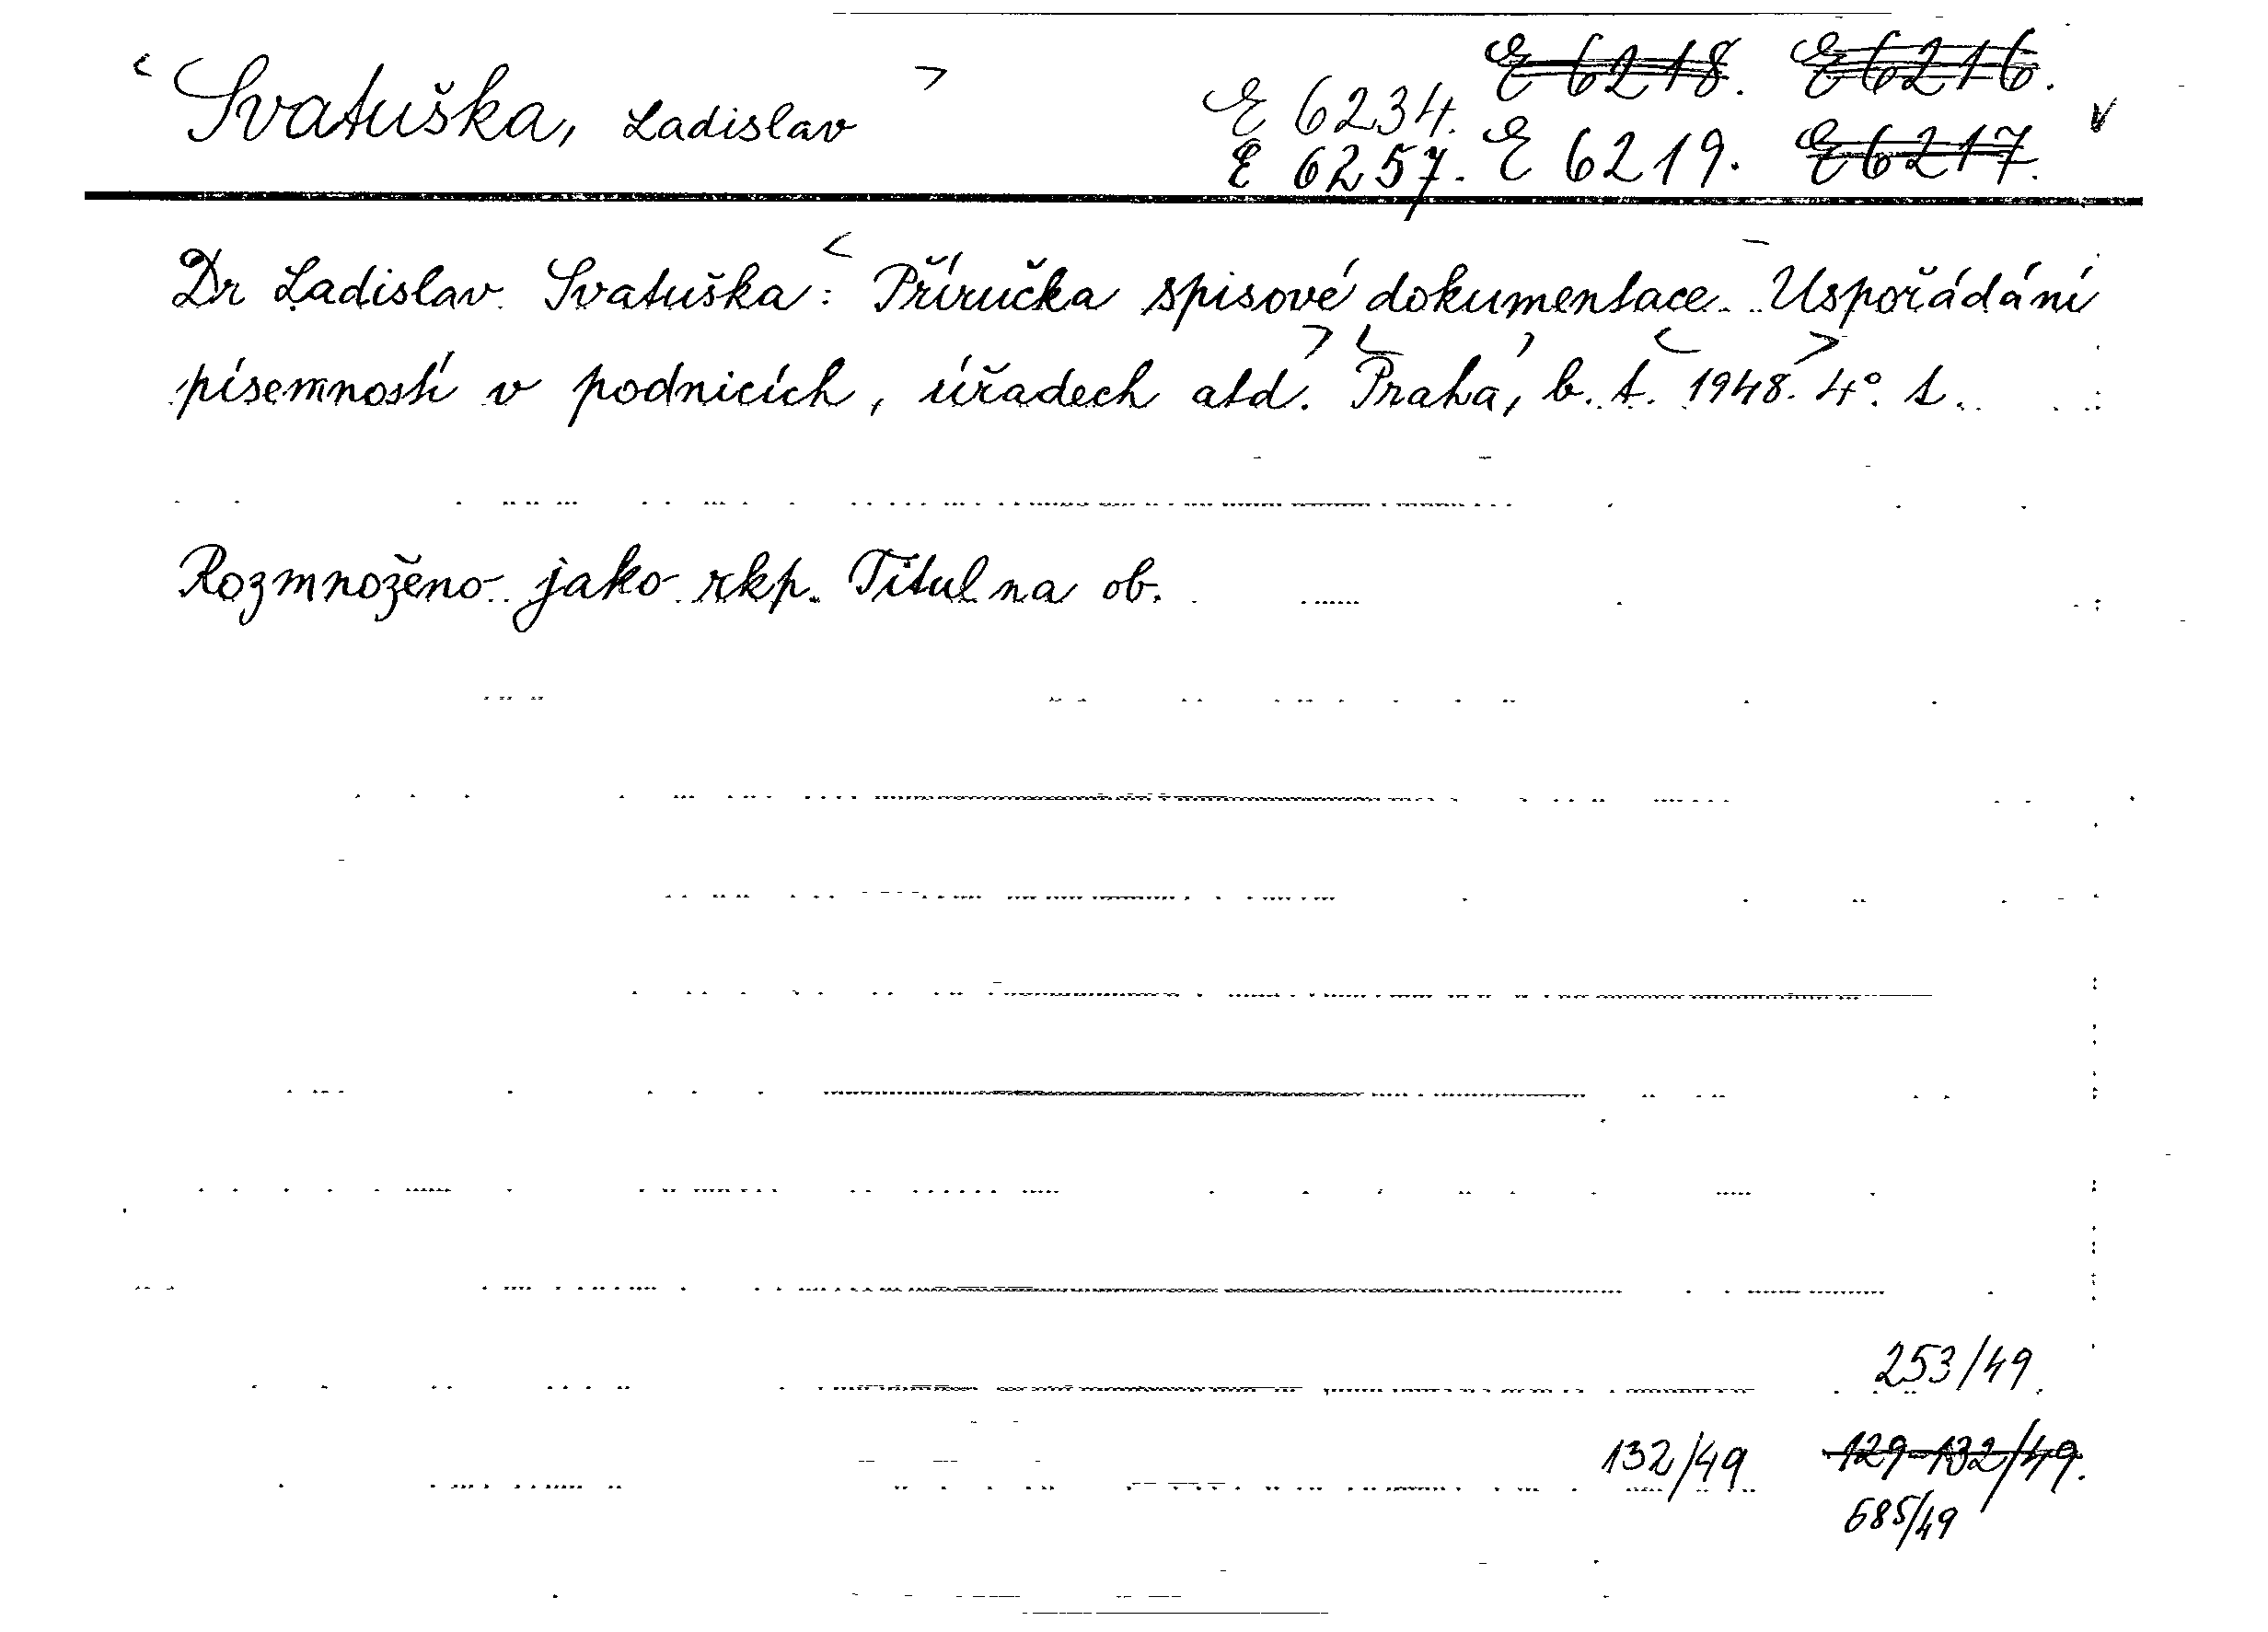 Svatuška, Ladislav
E 6234. E 6218. E 6216.
E 6257. E 6219. E 6217.
Dr Ladislav Svatuška: Příručka spisové dokumentace. Uspořádání
písemností v podnicích, úřadech atd. Praha, b. t. 1948. 4°. s.
Rozmnoženo jako rkp. Titul na ob.
253/49
132/49 129-132/49.
685/49